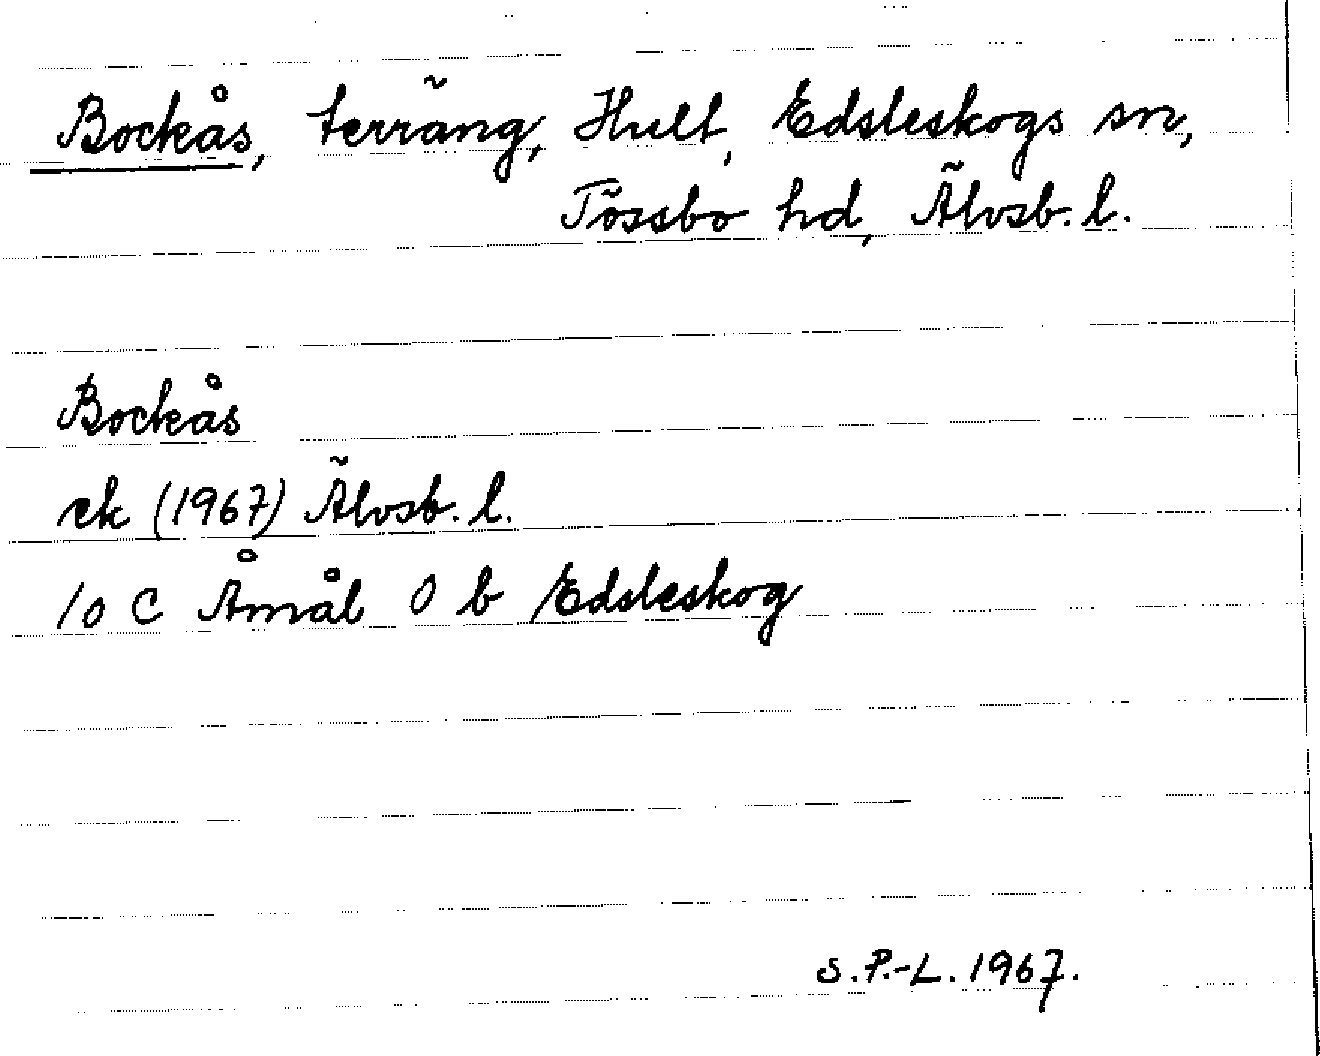 Bockås, terräng, Hult, Edsleskogs sn,
Tössbo hd, Älvsb. l.
Bockås
ek (1967) Älvsb. l.
10 C Åmål 0 b Edsleskog
S.P.-L. 1967.